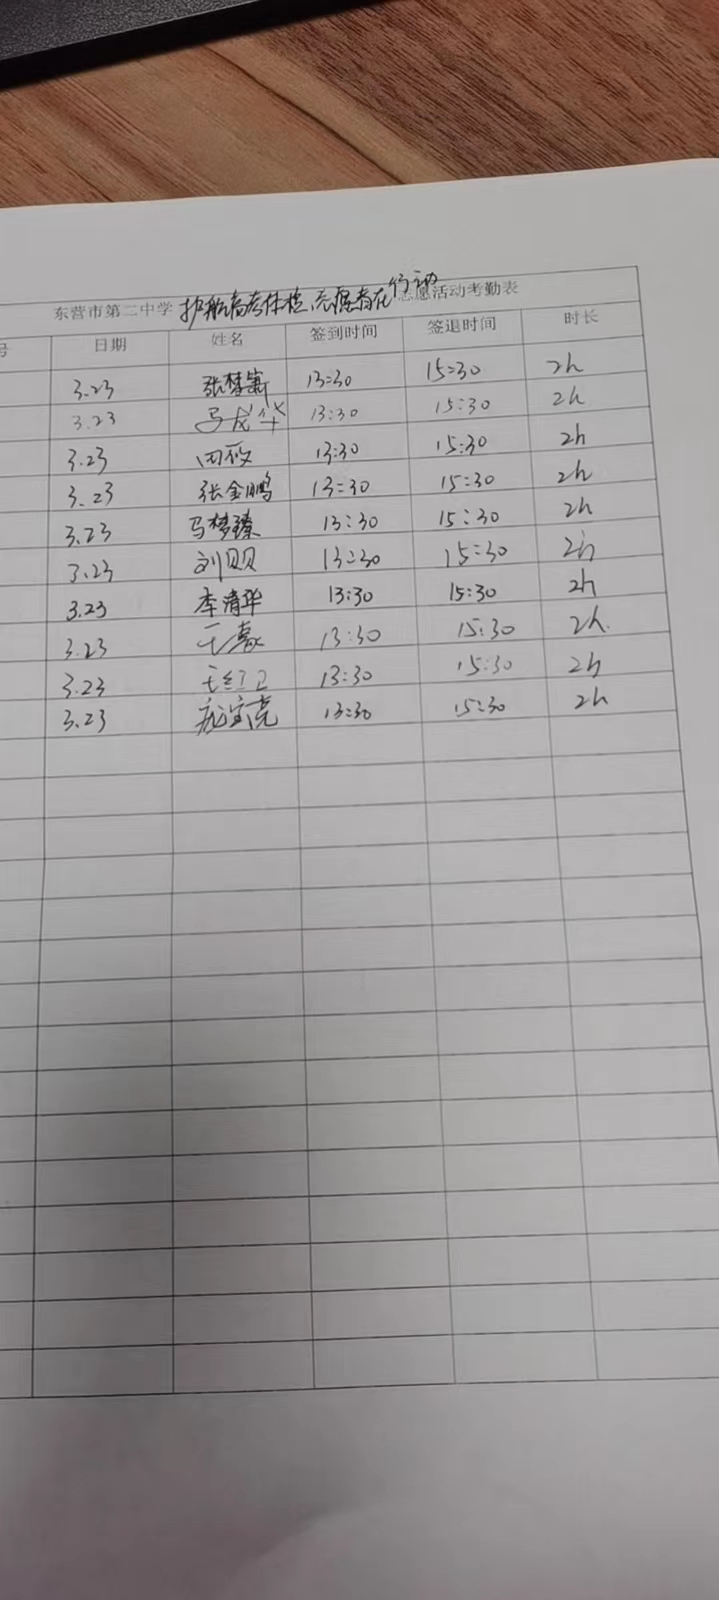 东营市第二中学 护航高考体检,志愿者在行动 志愿活动考勤表
号 日期 姓名 签到时间 签退时间 时长
3.23 张梦 13:30 15:30 2h
3.23 马成华 13:30 15:30 2h
3.23 田 13:30 15:30 2h
3.23 张金鹏 13:30 15:30 2h
3.23 马梦臻 13:30 15:30 2h
3.23 刘贝贝 13:30 15:30 2h
3.23 李清华 13:30 15:30 2h
3.23 王 13:30 15:30 2h.
3.23 王红卫 13:30 15:30 2h
3.23 宝亮 13:30 15:30 2h